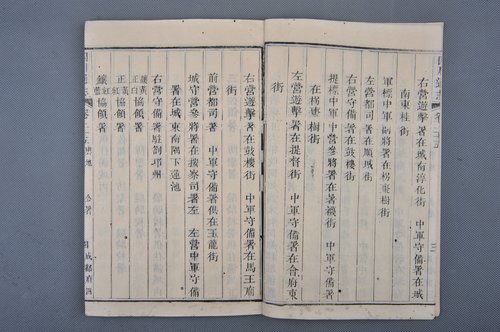 右營遊擊署在城南淳化街 中軍守備署在城
南東桂街
軍標中軍副將署在棓東樹街
左營都司署在順城街 中軍守備署
右營守備署在鼓樓街
提標中軍參將署在著襪街 中軍守備署
在棓東樹街
左營遊擊署在提督街 中軍守備署在會府東
街
右營遊擊署在鼓樓街 中軍守備署在馬王廟
街
前營都司署 中軍守備署俱在玉龍街
城守營參將署在按察司署左 左營中軍守備
署在城東南隅下蓮池
右營守備署駐劄邛州
鑲黃正白協領署
正黃正紅協領署
鑲紅鑲藍協領署
公署
成都府